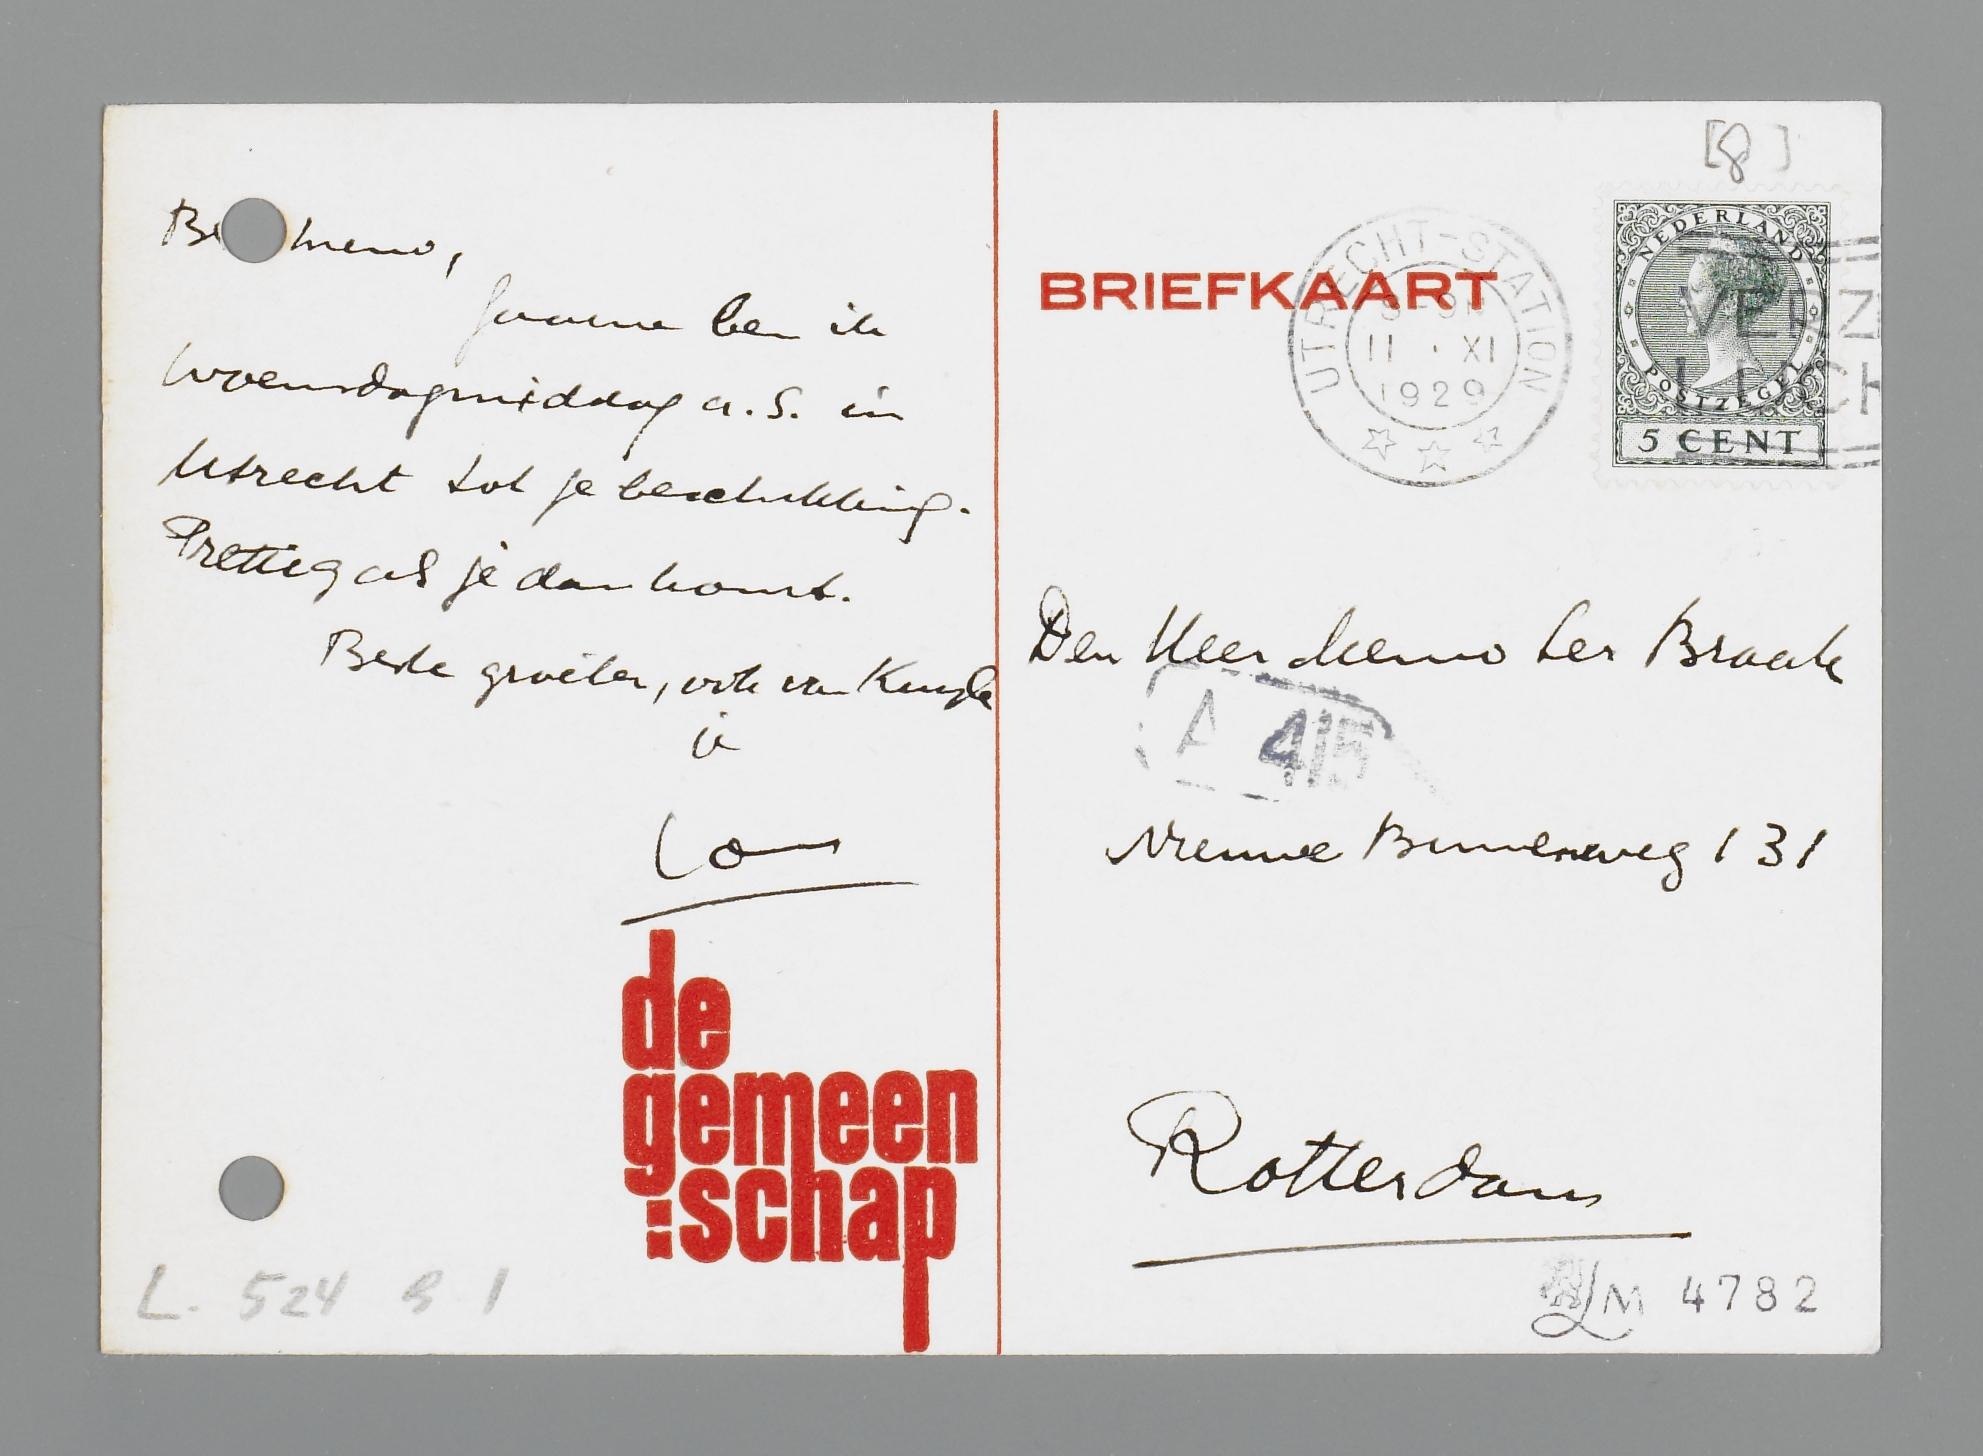 Be Menno,
gaarne ben ik
woensdagmiddag a.s. in
Utrecht tot je beschikking.
Prettig als je dan komt.
Beste groeten, ook van Kuyle
je
Lou
de
gemeen
schap
L. 524 B 1
[8]
BRIEFKAART
UTRECHT-STATION
11 · XI
1929
NEDERLAND
POSTZEGEL
5 CENT
Den Heer Menno ter Braak
A 415
Nieuwe Binnenweg 131
Rotterdam
LM 4782